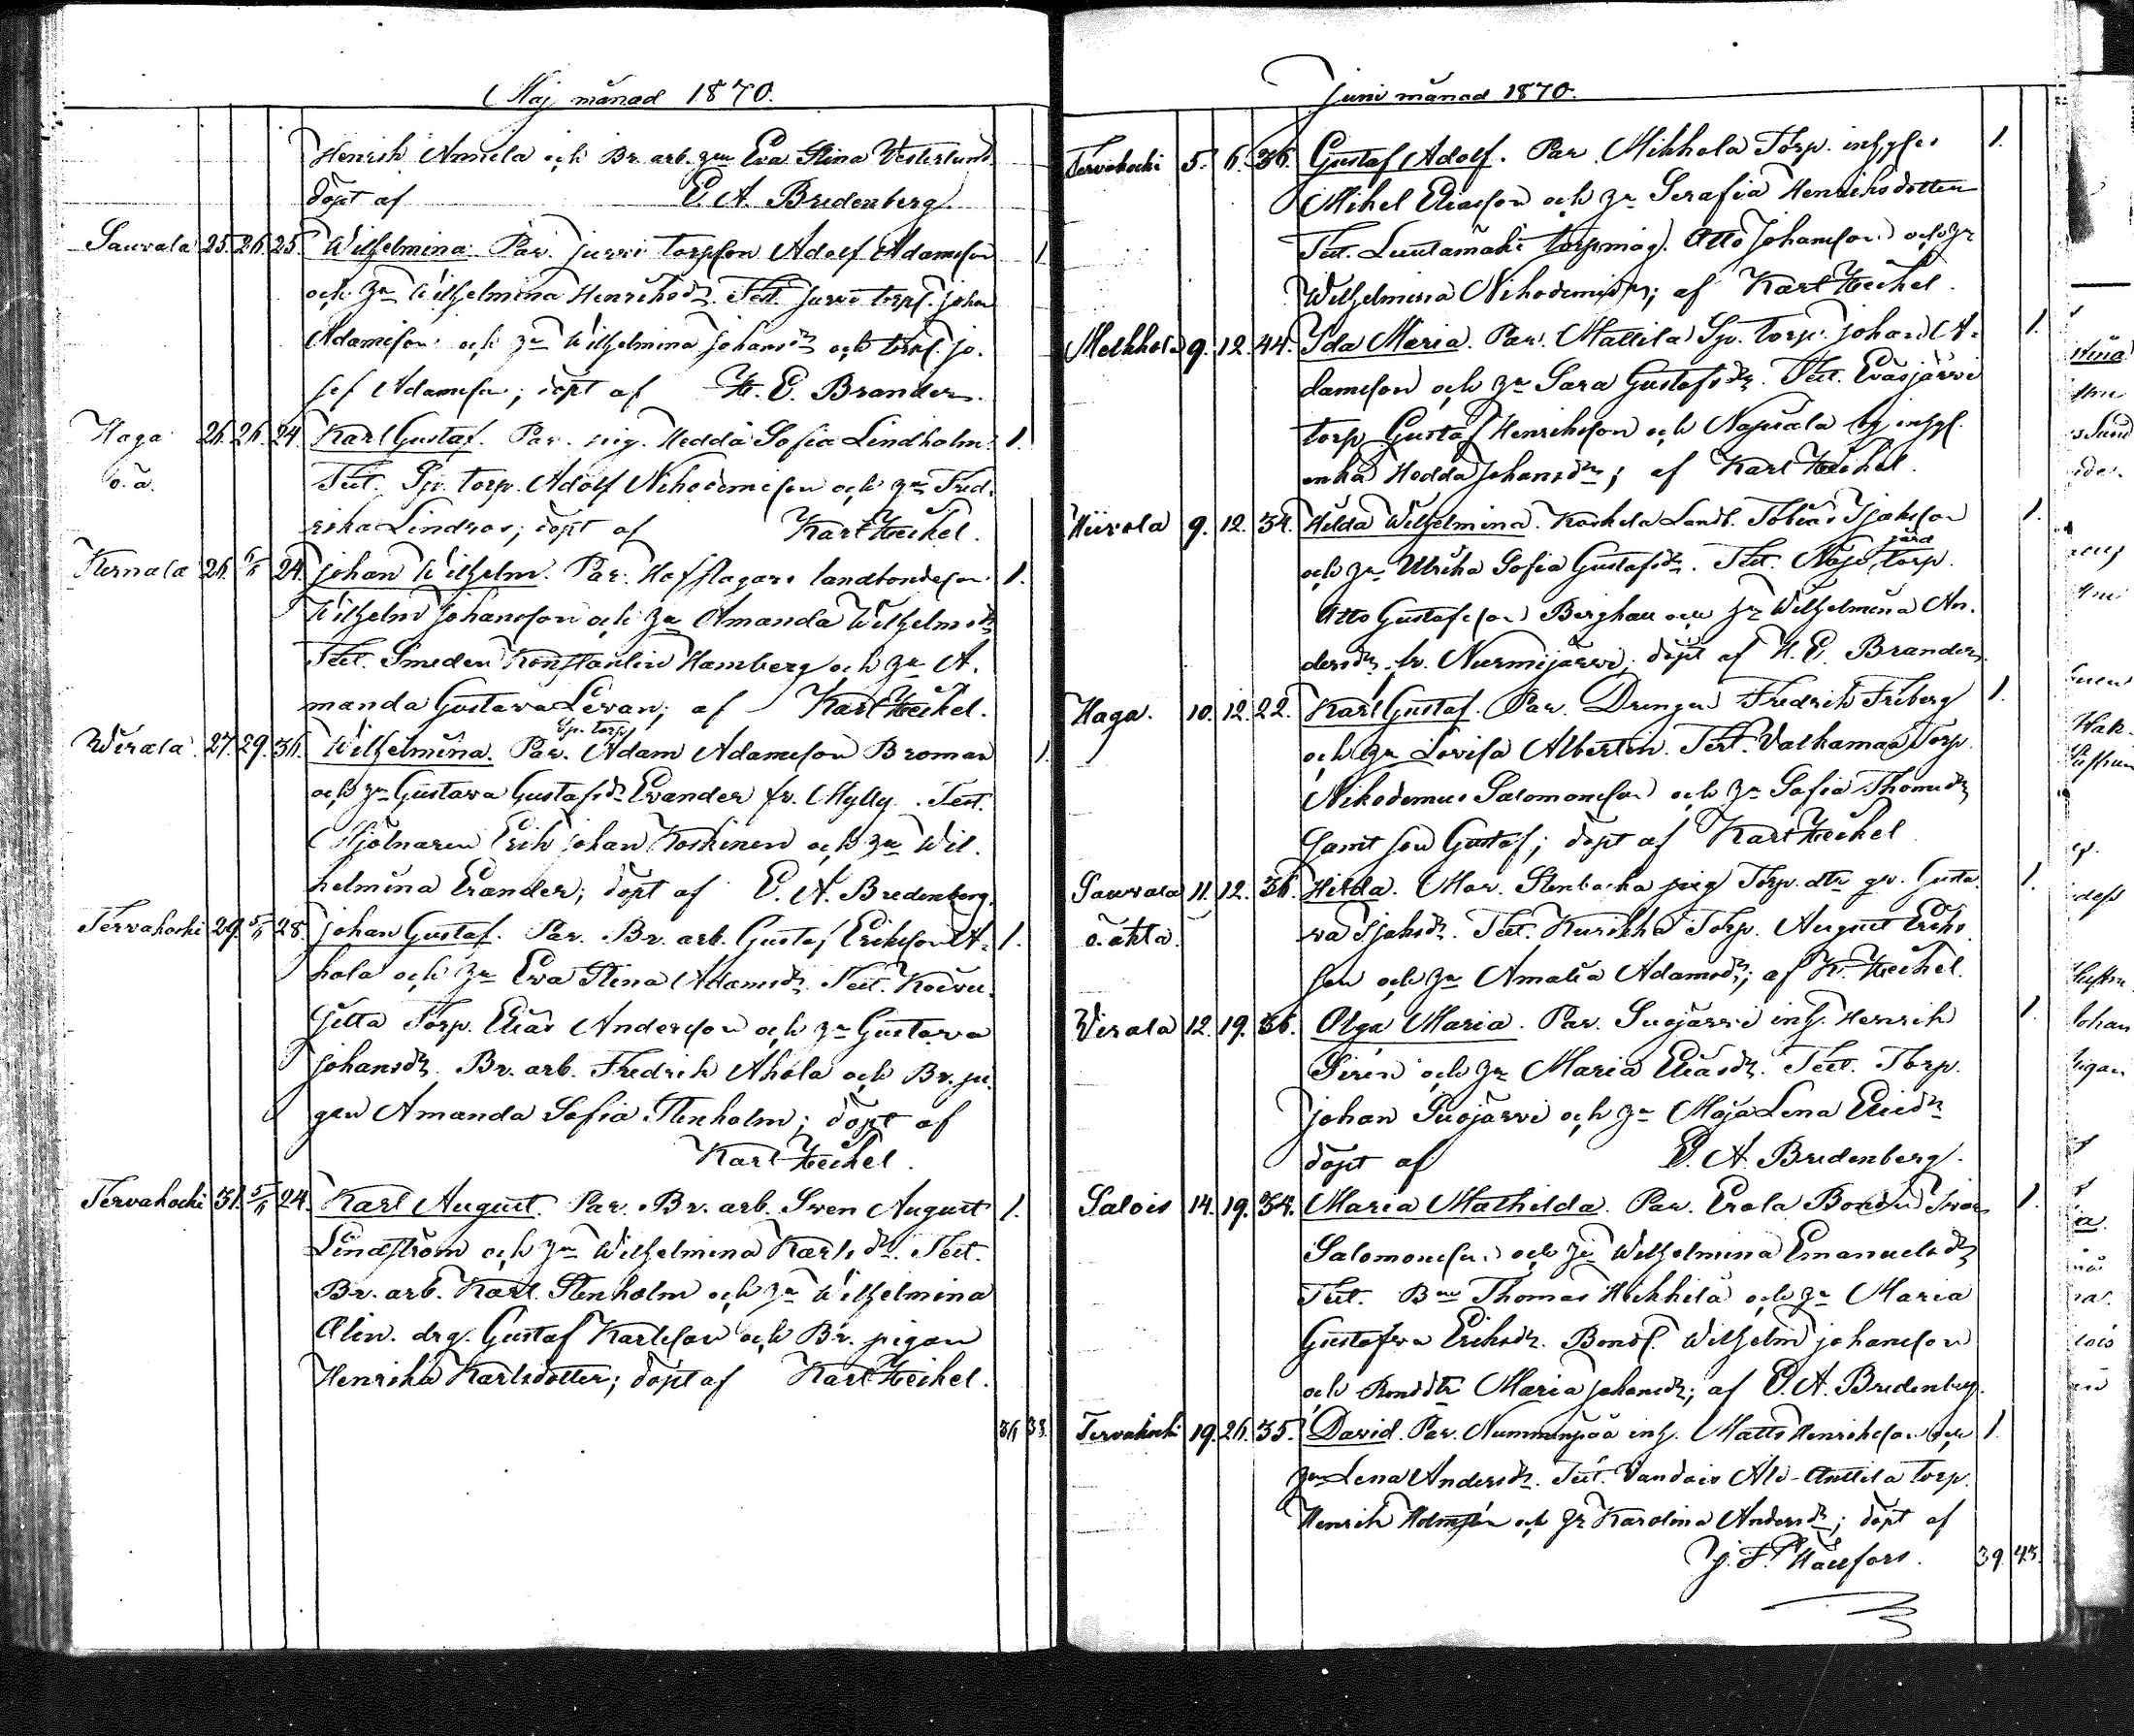 Maj månad 1870.
Henrik Annela och Br. arb. Eva Stina Vesterlund
döpt af E. A. Bredenberg.
Sauvala 25. 26. 25. Wilhelmina. Par. Jurvi torpson Adolf Adamsson 1
och Wilhelmina Henriksdr. Test. Jurvi torps. Johan
Adamsson och Wilhelmina Johansdr och torps. Jo-
sef Adamsson; döpt af K. E. Brander.
Haga 26. 26. 24. Karl Gustaf. Par. pig. Hedda Sofia Lindholm. 1.
o. ä. Test. Sp. torp. Adolf Nikodemisson och Fred-
rika Lindros; döpt af Karl Heikel.
Kernala 26. 5/6 24. Johan Wilhelm. Par. Hofslagare landbondeson 1.
Wilhelm Johansson och Amanda Wilhelmsdr
Test. Smeden Konstantin Hamberg och A-
manda Gustava Levan; af Karl Heikel.
Wirala 27. 29. 36. Wilhelmina. Par. Sp. torp. Adam Adamsson Broman 1.
och Gustava Gustafsdr Evander fr. Mylly. Test.
Mjölnaren Erik Johan Koskinen och Wil-
helmina Erander; döpt af E. A. Bredenberg.
Tervakoski 29. 5/6 28. Johan Gustaf. Par. Br. arb. Gustaf Eriksson A- 1.
hola och Eva Stina Adamsdr. Test. Koivu-
Torp. Elias Andersson och Gustava
Johansdr. Br. arb. Fredrik Ahola och Br. pi-
gan Amanda Sofia Stenholm; döpt af
Karl Heikel.
Tervakoski 31. 5/6 24. Karl August. Par. Br. arb. Sven August 1.
Lindström och Wilhelmina Karlsdr. Test.
Br. arb. Karl Stenholm och Wilhelmina
Alin. drg. Gustaf Karlsson och Br. pigan
Henrika Karlsdotter; döpt af Karl Heikel.
36 33.
Juni månad 1870.
Tervakoski 5. 6. 36. Gustaf Adolf. Par. Mikkola Torp. 1.
Mikel Eliasson och Serafia Henriksdotter
Test. Luutamäki torpmåg. Otto Johansson och
Wilhelmina Nikodemidr; af Karl Heikel.
Melkkola 9. 12. 44. Ida Maria. Par. Mattila Sp. torp. Johan A- 1.
damsson och Sara Gustafsdr. Test. Eväsjärvi
torp. Gustaf Henriksson och Napiala
enka Hedda Johansdr; af Karl Heikel.
Hiivola 9. 12. 34. Hilda Wilhelmina. Koskela Landb. Tobias Isaksson 1.
och Ulrika Sofia Gustafsdr. Test. torp.
Otto Gustafsson Berghall och Wilhelmina An-
dersdr. fr. Nurmijärvi; döpt af K. E. Brander.
Haga. 10. 12. 22. Karl Gustaf. Par. Drengen Fredrik Friberg 1.
och Lovisa Albertin. Test. Valkamaa Torp.
Nikodemus Salomonsson och Sofia Thomasdr
samt son Gustaf; döpt af Karl Heikel
Sauvala 11. 12. 36. Hilda. Mor. Stenbacka pig. Torp. dtr Gusta- 1.
o. äkta. va Isaksdr. Test. Kurikka Torp. August Eriks-
son och Amalia Adamsdr; af K. Heikel.
Virala 12. 19. 36. Olga Maria. Par. Suojärvi inh. Henrik 1.
Sirén och Maria Eliasdr. Test. Torp.
Johan Suojärvi och Maja Lena
döpt af E. A. Bredenberg.
Salois 14. 19. 34. Maria Mathilda. Par. Erola Bonden Ivar 1.
Salomonsson och Wilhelmina Emanuelsdr
Test. Thomas Heikkilä och Maria
Gustafva Eriksdr. Bonds. Wilhelm Johansson
och Bonddtr Maria Johansdr; af E. A. Bredenberg.
Tervakoski 19. 26. 35. David. Par. Nummenpää inh. Matts Henriksson och 1.
Lena Andersdr. Test. Vandais Ali-Anttila torp.
Henrik Holmstén och Karolina Andersdr; döpt af
39. 43.